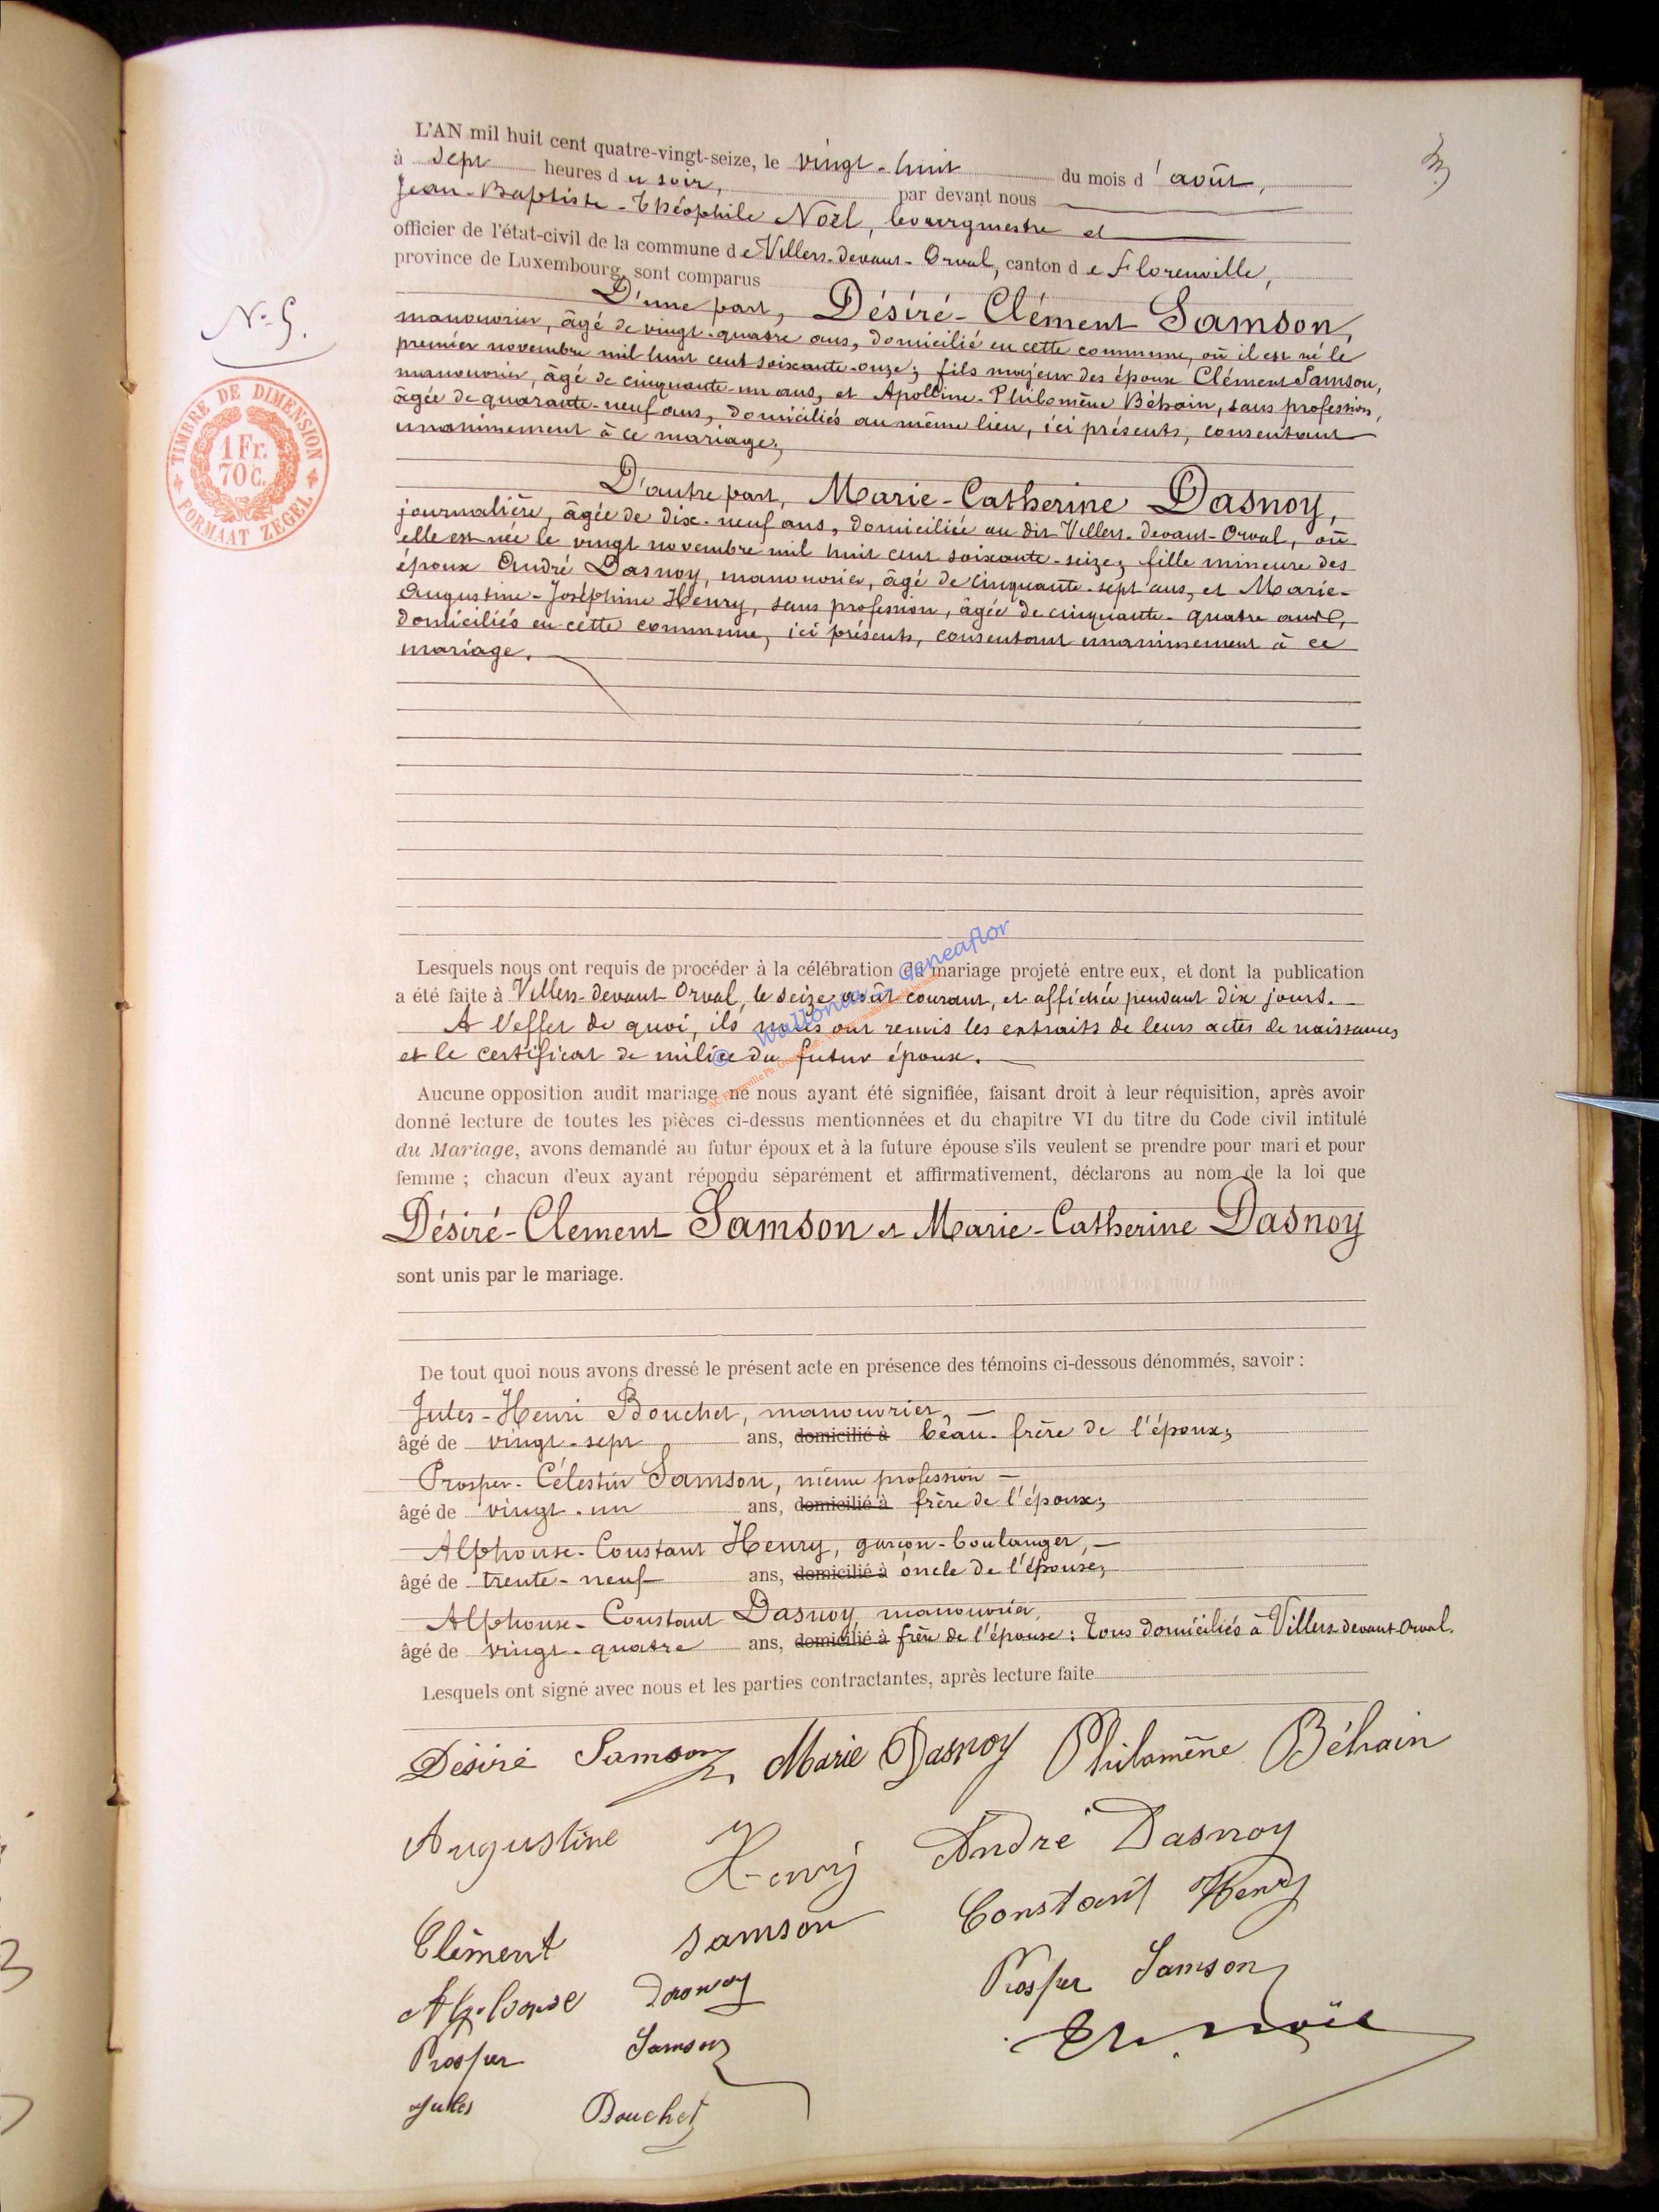 L'AN mil huit cent quatre-vingt-seize, le vingt-huit du mois d'août,
à sept heures du soir, par devant nous
Jean-Baptiste-Théophile Noël, bourgmestre et
officier de l'état-civil de la commune de Villers-devant-Orval, canton de Florenville,
province de Luxembourg, sont comparus
N° 5.
D'une part, Désiré-Clément Samson,
manouvrier, âgé de vingt-quatre ans, domicilié en cette commune, où il est né le
premier novembre mil huit cent soixante-onze; fils majeur des époux Clément Samson,
manouvrier, âgé de cinquante-un ans, et Apolline-Philomène Béhain, sans profession,
âgée de quarante-neuf ans, domiciliés au même lieu, ici présents, consentant
unanimement à ce mariage;
TIMBRE DE DIMENSION
1 Fr.
70 C.
FORMAAT ZEGEL
D'autre part, Marie-Catherine Dasnoy,
journalière, âgée de dix-neuf ans, domiciliée au dit Villers-devant-Orval, où
elle est née le vingt novembre mil huit cent soixante-seize; fille mineure des
époux André Dasnoy, manouvrier, âgé de cinquante-sept ans, et Marie-
Augustine-Joséphine Henry, sans profession, âgée de cinquante-quatre ans,
domiciliés en cette commune, ici présents, consentant unanimement à ce
mariage.
Lesquels nous ont requis de procéder à la célébration du mariage projeté entre eux, et dont la publication
a été faite à Villers-devant-Orval, le seize août courant, et affichée pendant dix jours.
A l'effet de quoi, ils nous ont remis les extraits de leurs actes de naissances
et le certificat de milice du futur époux.
© Wallonia - Geneaflor
Aucune opposition audit mariage ne nous ayant été signifiée, faisant droit à leur réquisition, après avoir
donné lecture de toutes les pièces ci-dessus mentionnées et du chapitre VI du titre du Code civil intitulé
du Mariage, avons demandé au futur époux et à la future épouse s'ils veulent se prendre pour mari et pour
femme ; chacun d'eux ayant répondu séparément et affirmativement, déclarons au nom de la loi que
Désiré-Clement Samson et Marie-Catherine Dasnoy
sont unis par le mariage.
De tout quoi nous avons dressé le présent acte en présence des témoins ci-dessous dénommés, savoir :
Jules-Henri Bouchet, manouvrier,
âgé de vingt-sept ans, domicilié à beau-frère de l'époux;
Prosper-Célestin Samson, même profession
âgé de vingt-un ans, domicilié à frère de l'époux;
Alphonse-Constant Henry, garçon-boulanger,
âgé de trente-neuf ans, domicilié à oncle de l'épouse;
Alphonse-Constant Dasnoy, manouvrier,
âgé de vingt-quatre ans, domicilié à frère de l'épouse : tous domiciliés à Villers-devant-Orval.
Lesquels ont signé avec nous et les parties contractantes, après lecture faite
Désiré Samson Marie Dasnoy Philomène Béhain
Augustine Henry André Dasnoy
Clément Samson Constant Henry
Alphonse Dasnoy Prosper Samson
Prosper Samson Th. Noël
Jules Bouchet